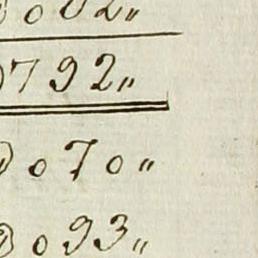 002„
792„
070„
093„